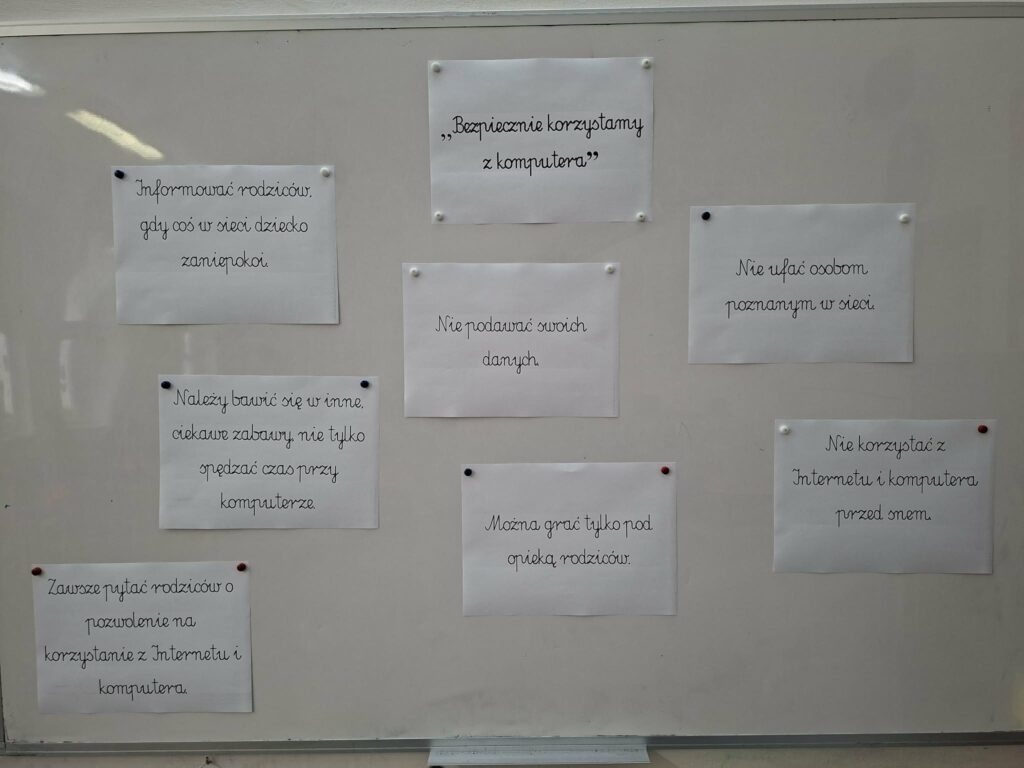 „Bezpiecznie korzystamy
z komputera”
Informować rodziców,
gdy coś w sieci dziecko
zaniepokoi.
Nie ufać osobom
poznanym w sieci.
Nie podawać swoich
danych.
Należy bawić się w inne,
ciekawe zabawy, nie tylko
spędzać czas przy
komputerze.
Nie korzystać z
Internetu i komputera
przed snem.
Można grać tylko pod
opieką rodziców.
Zawsze pytać rodziców o
pozwolenie na
korzystanie z Internetu i
komputera.